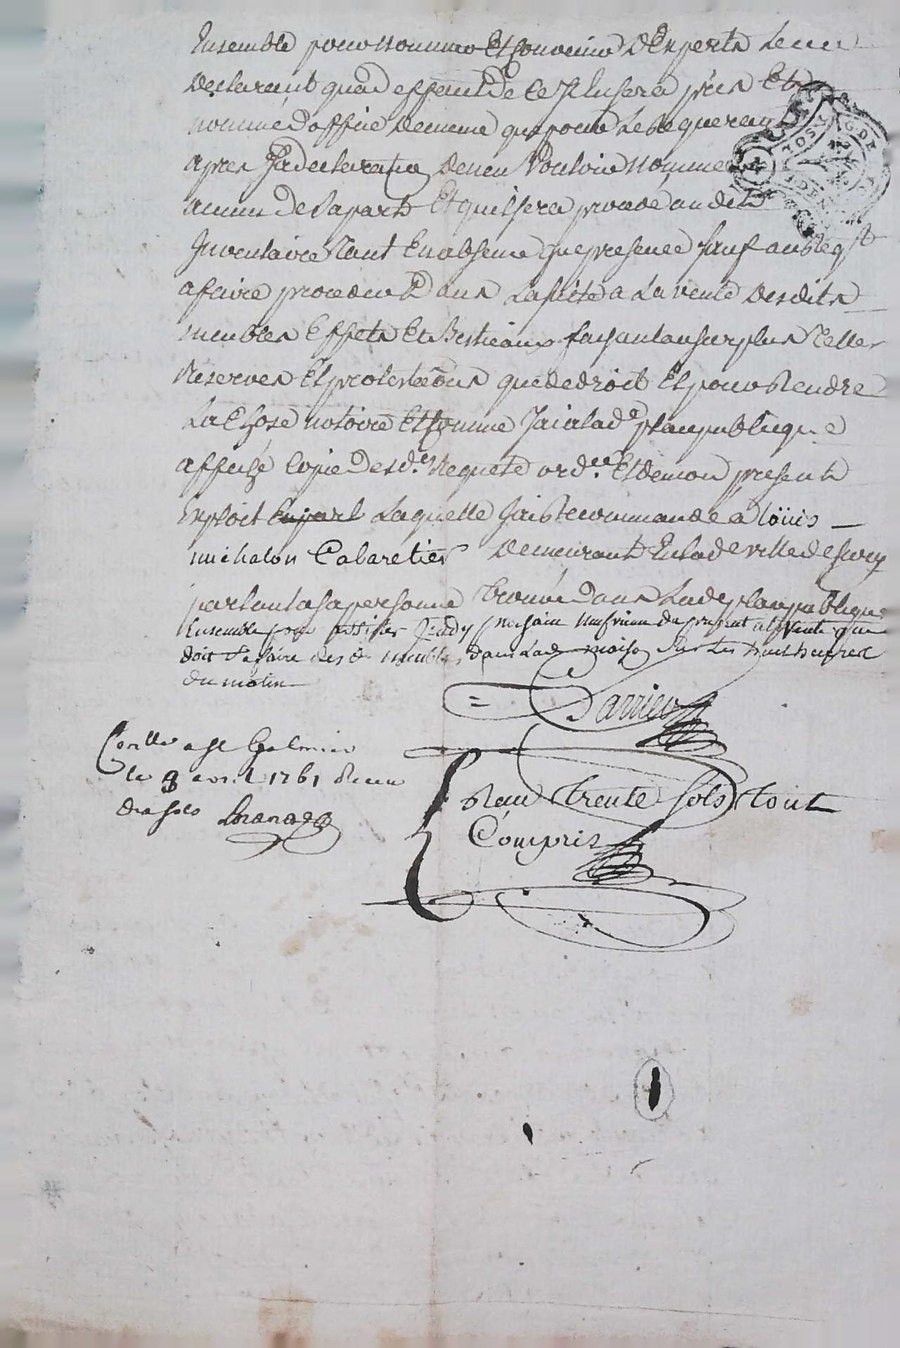 Ensemble pour nommer Et Convenir D'Experts Leur
Declarant qua deffaut de ce Il en sera pris Et
nommé d'office De meme que pour Le Requerant
apres Sa declaration De n'en Vouloir Nommer
aucun De Sa part Et quil Sera procedé audit
Inventaire Tant En absence Que presence Sauf au Reqt
a faire proceder Dans La suite a La vente Desdits
meubles Effets Et Bestiaux faisant au surplus Telles
Reserves Et protestaōns que de droit Et pour Rendre
La Chose notoire Et Comme J'ai a lade place publique
affiché Copie Desde. Requete ordce. Et De mon present
Exploit Laquelle J'ai Recommandé a loüis
michalon Cabaretier Demeurant En lade ville de
parlant a sa personne Trouvé Dans Lade place publique
Ensemble pour assister Jeudy prochain neufvieme du present a la Vente que
doit Se faire des de. meubles dans Lad maison Sur Les huit heures
Du matin
Darrieu
Conllé a St Galmier
le 8 avril 1761 Receu
dix sols
Reçu Trente Sols Tout
Compris